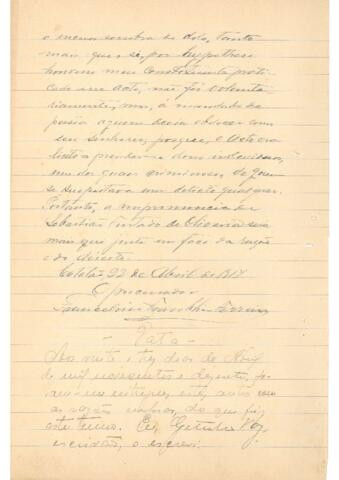 o menor sombra de dolo, tanto
mais que se, por hypothese
houvesse meu Constituinte prati-
cado um acto, não foi volunta-
riamente, mas, a mandado de
pessôa a quem devia obdecer como
seu senhor, porque, o acto era
licito a prender-se dous individuos,
um dos quaes criminoso, de quem
se suspeitava um delicto qualquer.
Portanto, a impronuncia de
Sebastião Furtado de Oliveira será
mais que justa em face da razão
e do direito.
Catalão 22 de Abril de 191
O procurador
Data
Aos vinte e tres dias de Abril
de mil novecentos e dezoito, fo-
ram-me entregues estes autos com
as razões do que fiz
este termo. Eu, Getulio Vaz,
escrivão, o escrevi.